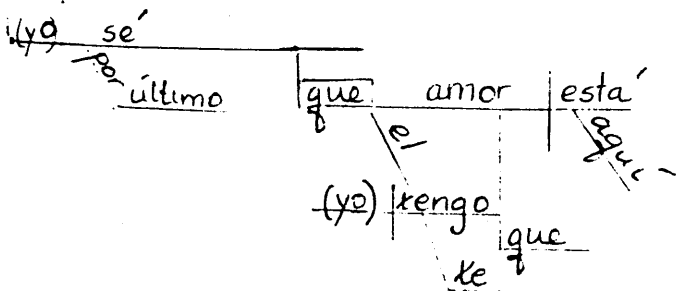 (yo) sé
por
último
que amor está
el aquí
(yo) tengo
que
te